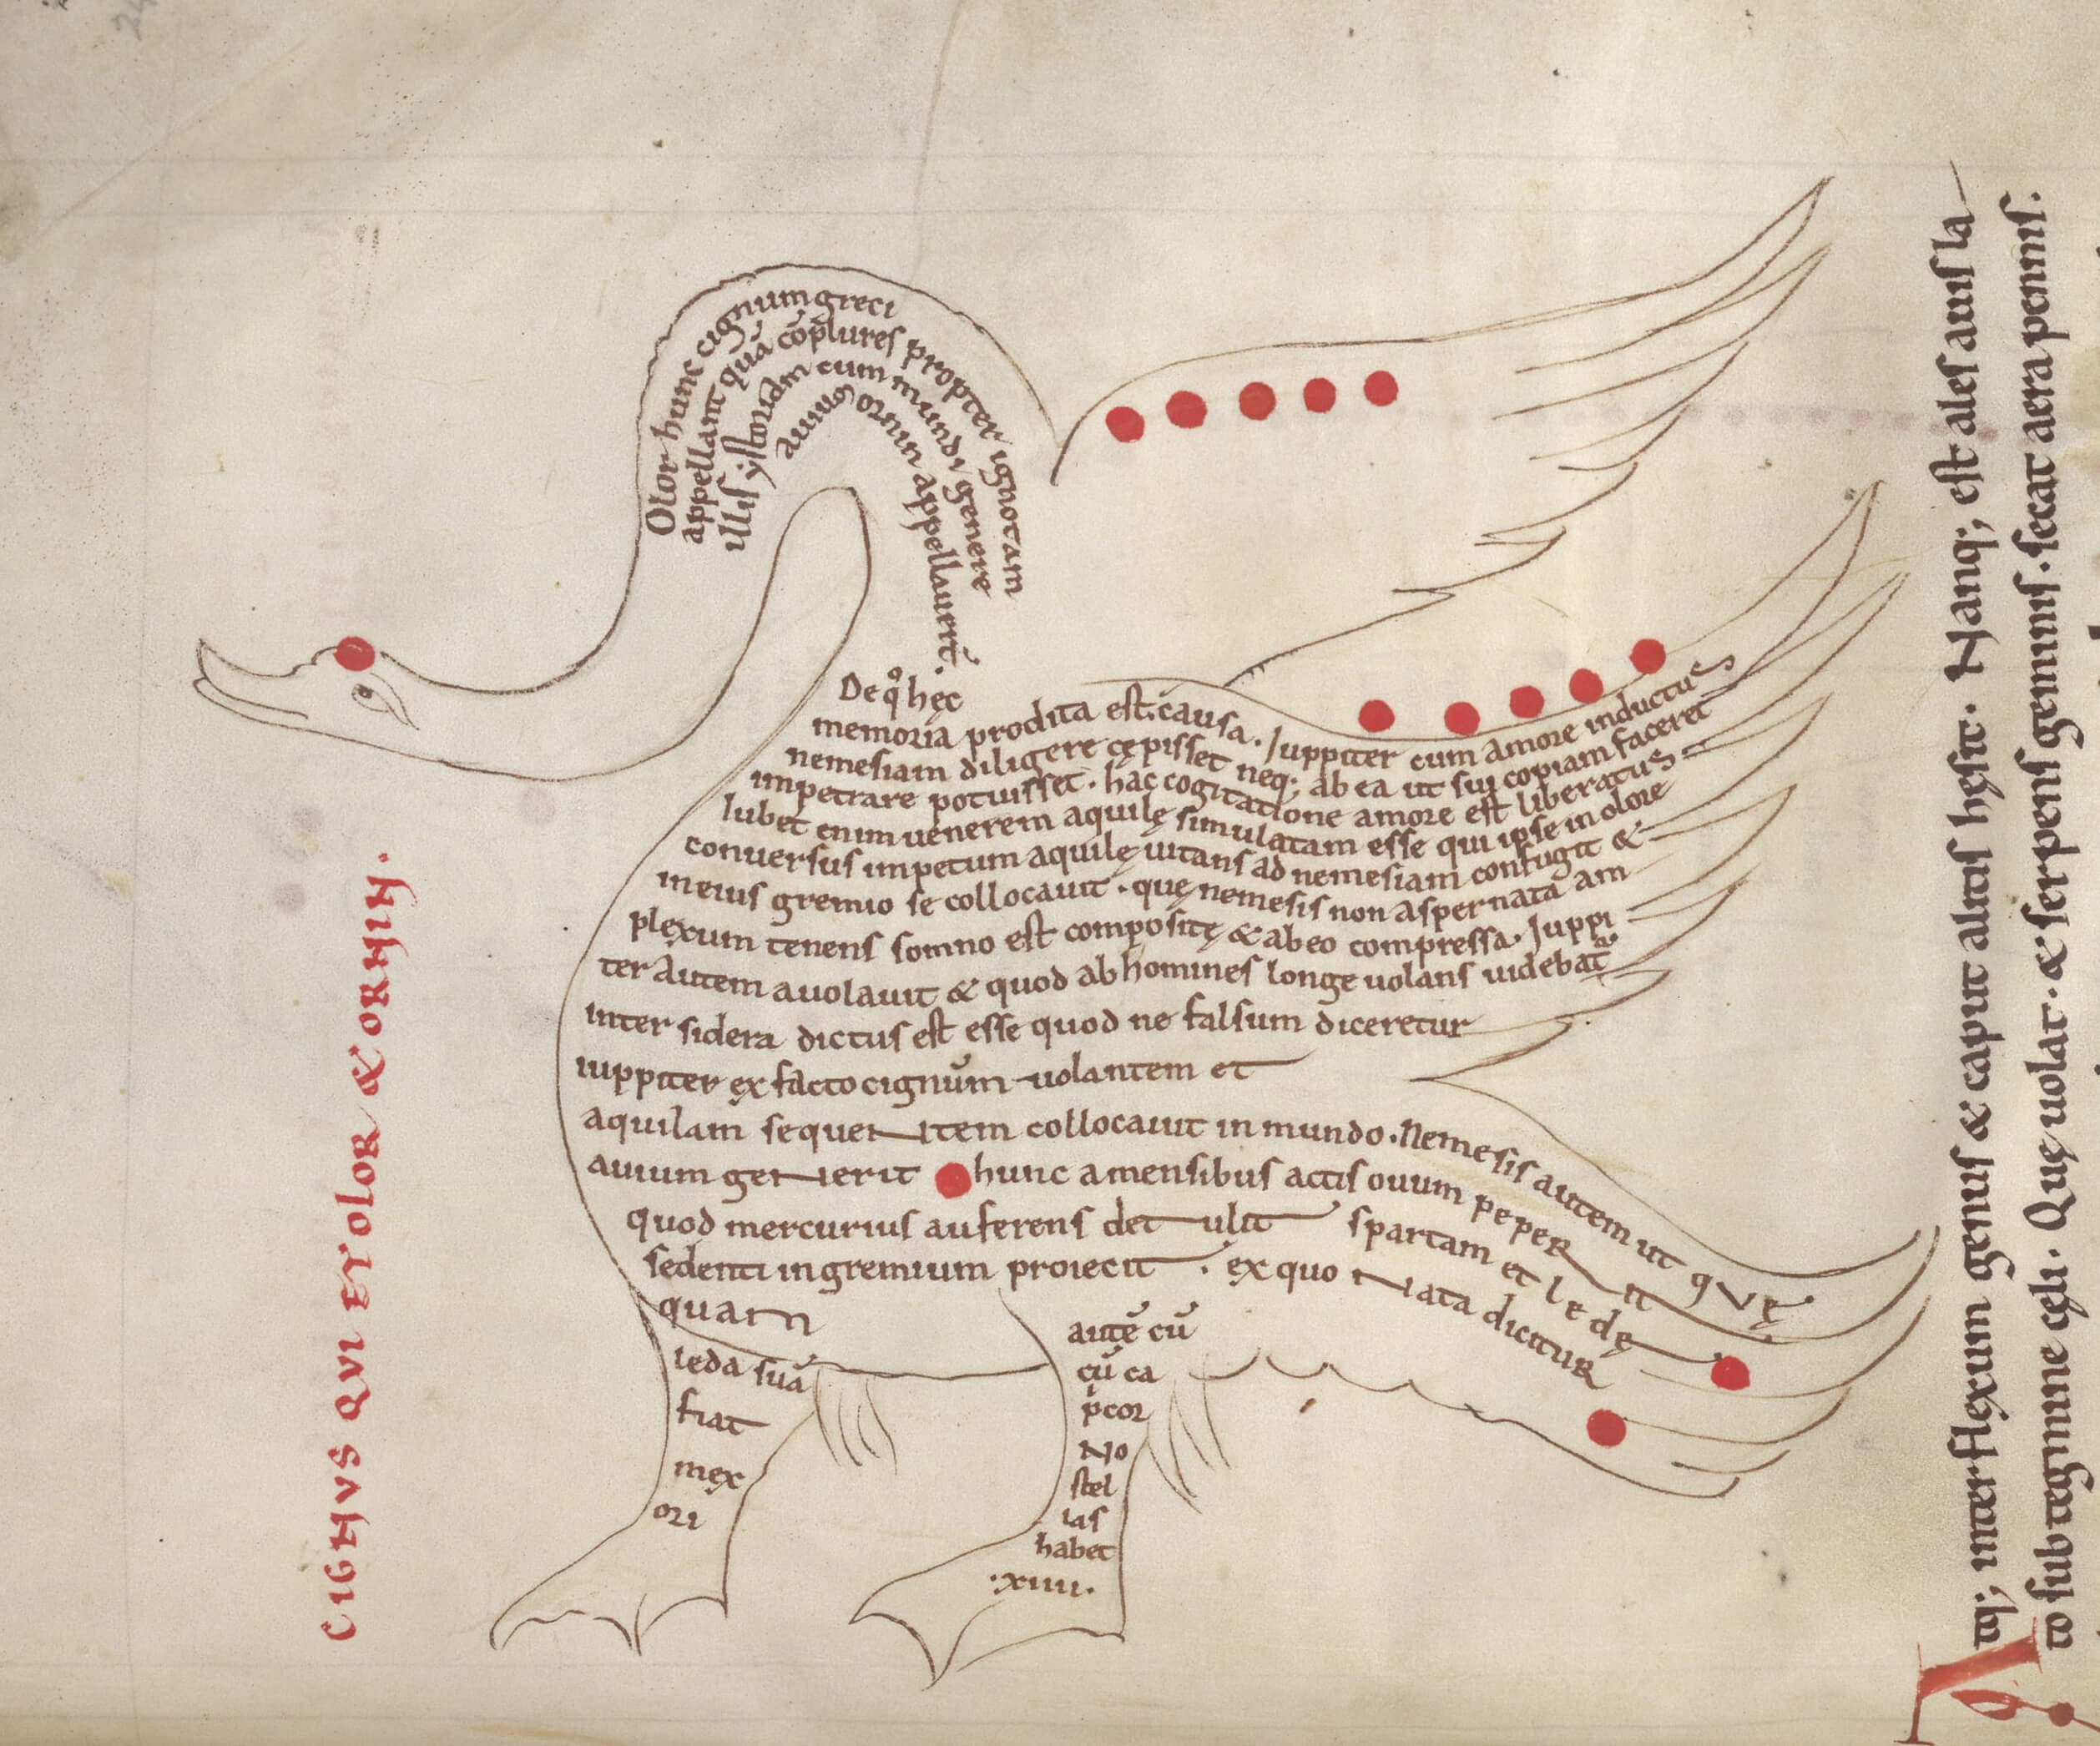 CIGNVS QVI ET OLOR & ORNIN.
Olor hunc cignum greci
appellant quā cōplures propter ignotam
illis ystoriam cum mundi genere
auium ornin appellauerūt.
De qͦ hęc
memoria prodita est causa. Iuppiter cum amore inductus
nemesiam diligere cępisset neq; ab ea ut sui copiam faceret
impetrare potuisset. hac cogitatione amore est liberatus
Iubet enim uenerem aquilę simulatam esse qui ipse in olore
conuersus impetum aquilę uitans ad nemesiam confugit &
in eius gremio se collocauit. quę nemesis non aspernata am
plexum tenens somno est compositę & abeo compressa. Iuppi
ter autem auolauit & quod ab homines longe uolans uidebat᷑
inter sidera dictus est esse quod ne falsum diceretur
iuppiter ex facto cignūm uolantem et
aquilam sequentem collocauit in mundo. Nemesis autem ut quę
auium generit hunc amensibus actis ouum peperit
quod mercurius auferens detulit spartam et ledę
sedenti ingremium proiecit. ex quo nata dicitur
quam
leda suā
fiat
mex
ori
autē cū
cū ca
pcor
No
stel
las
habet
.xiiii.
tq; inter flexum genus & caput alitis hęsit. Nanq; est ales auis la
to sub tegmine cęli. Quę uolat. & serpens geminis. secat aera pennis.